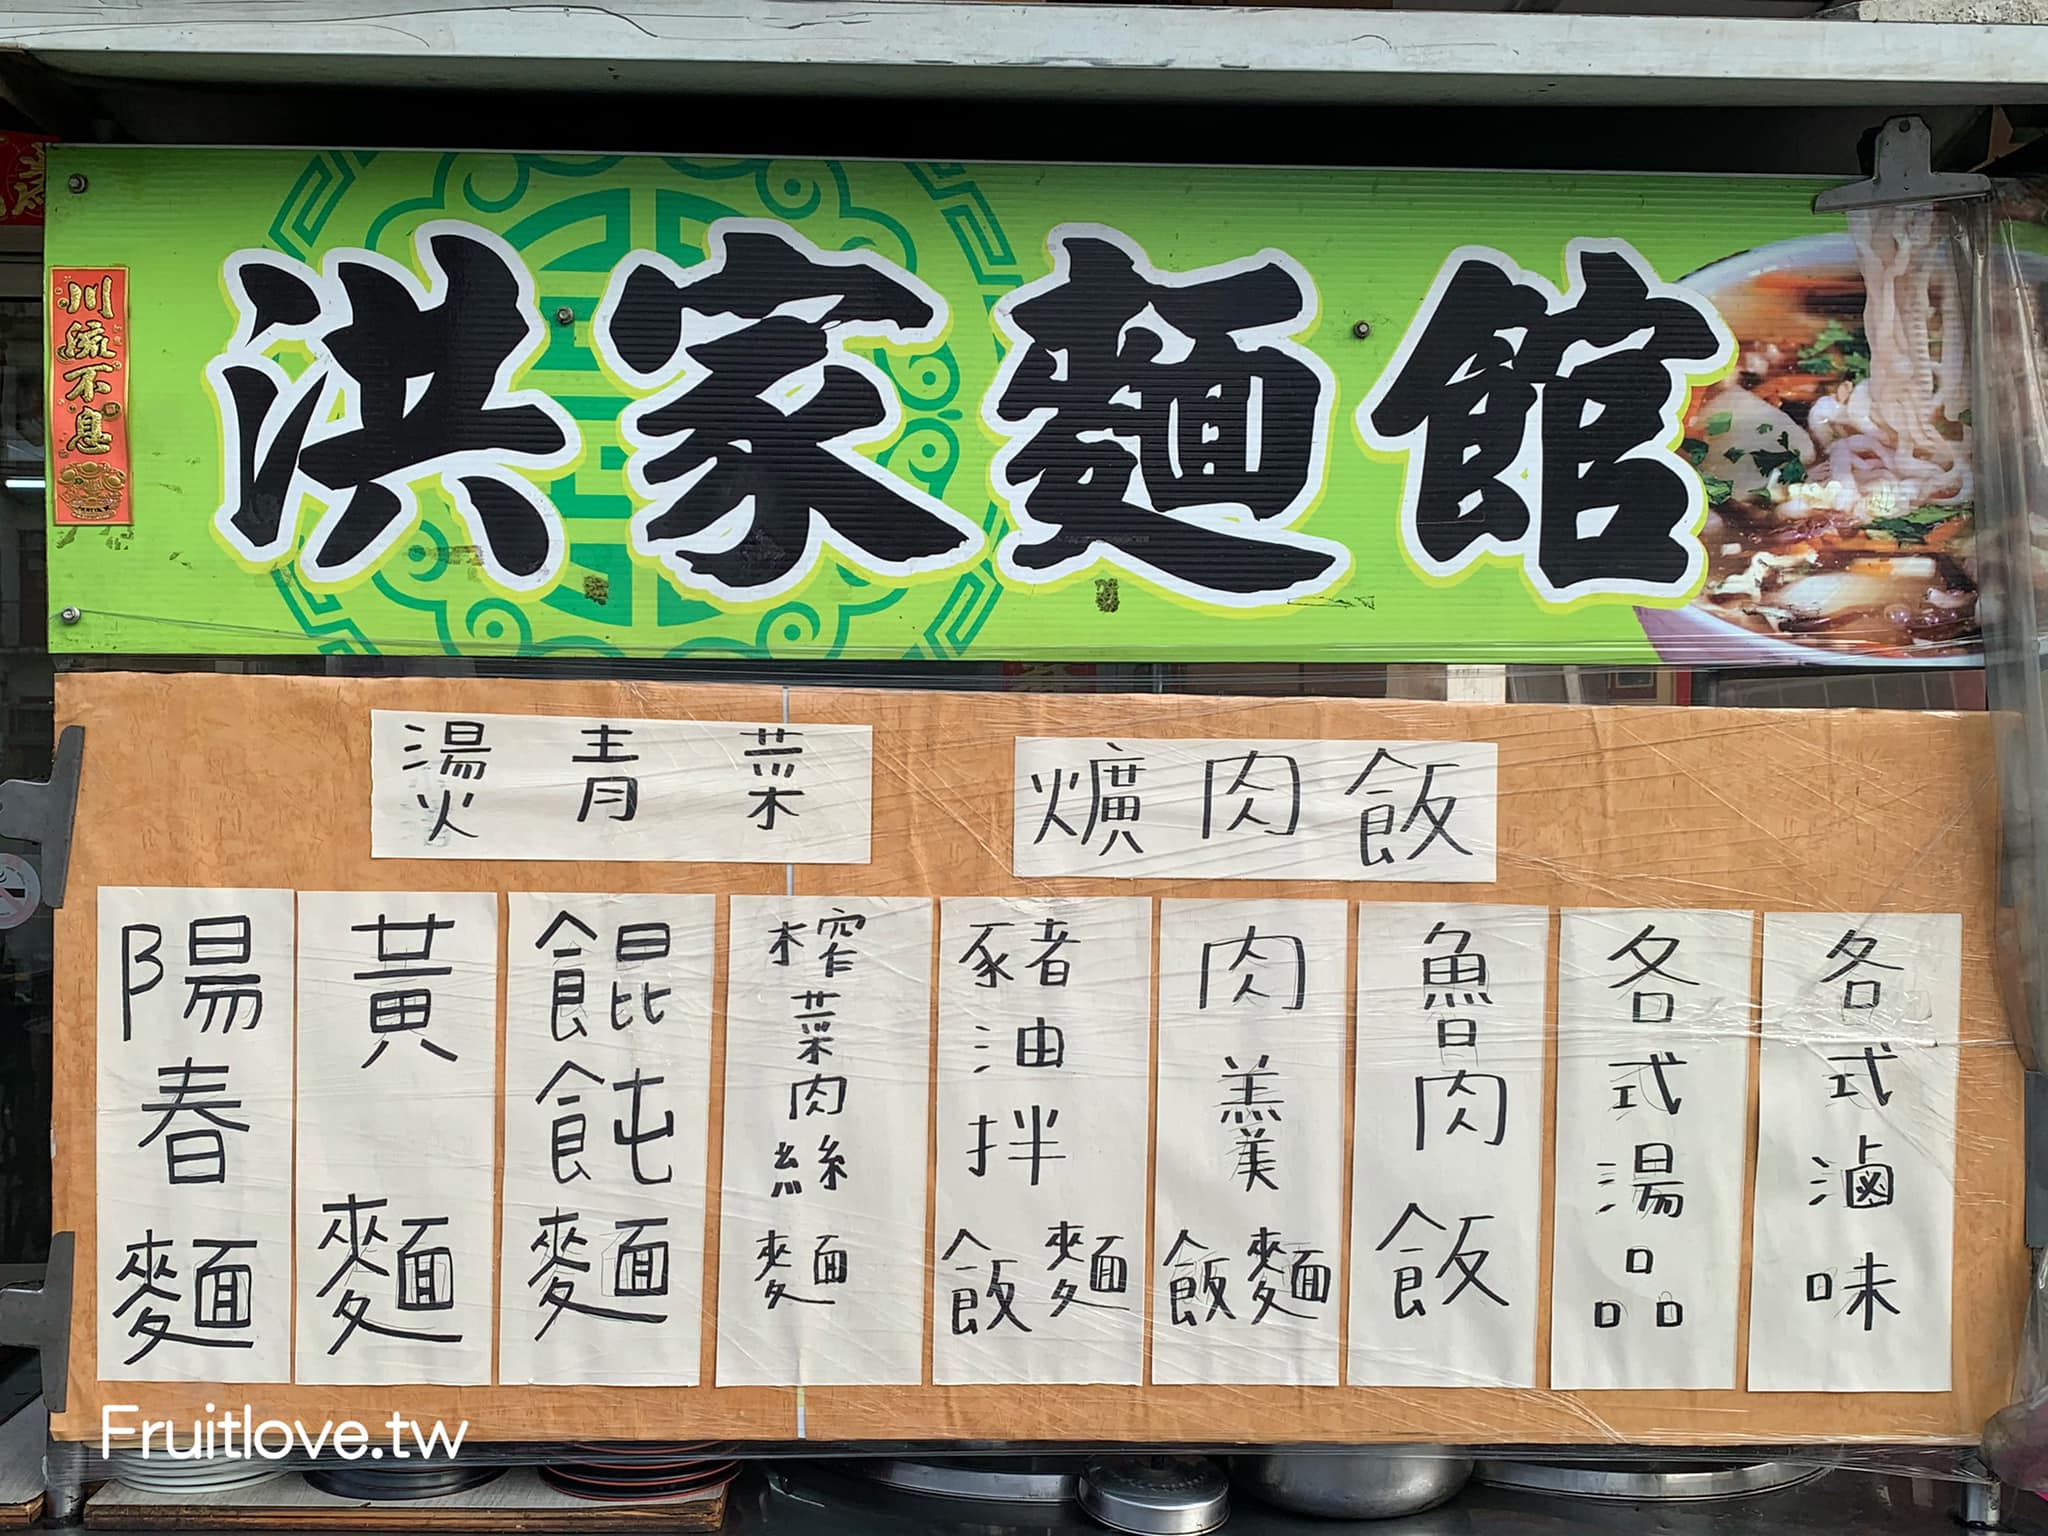 洪家麵館
川流不息
燙青菜
爌肉飯
陽春麵
黃麵
餛飩麵
榨菜肉絲麵
豬油拌飯麵
肉羹飯麵
魯肉飯
各式湯品
各式滷味
Fruitlove.tw